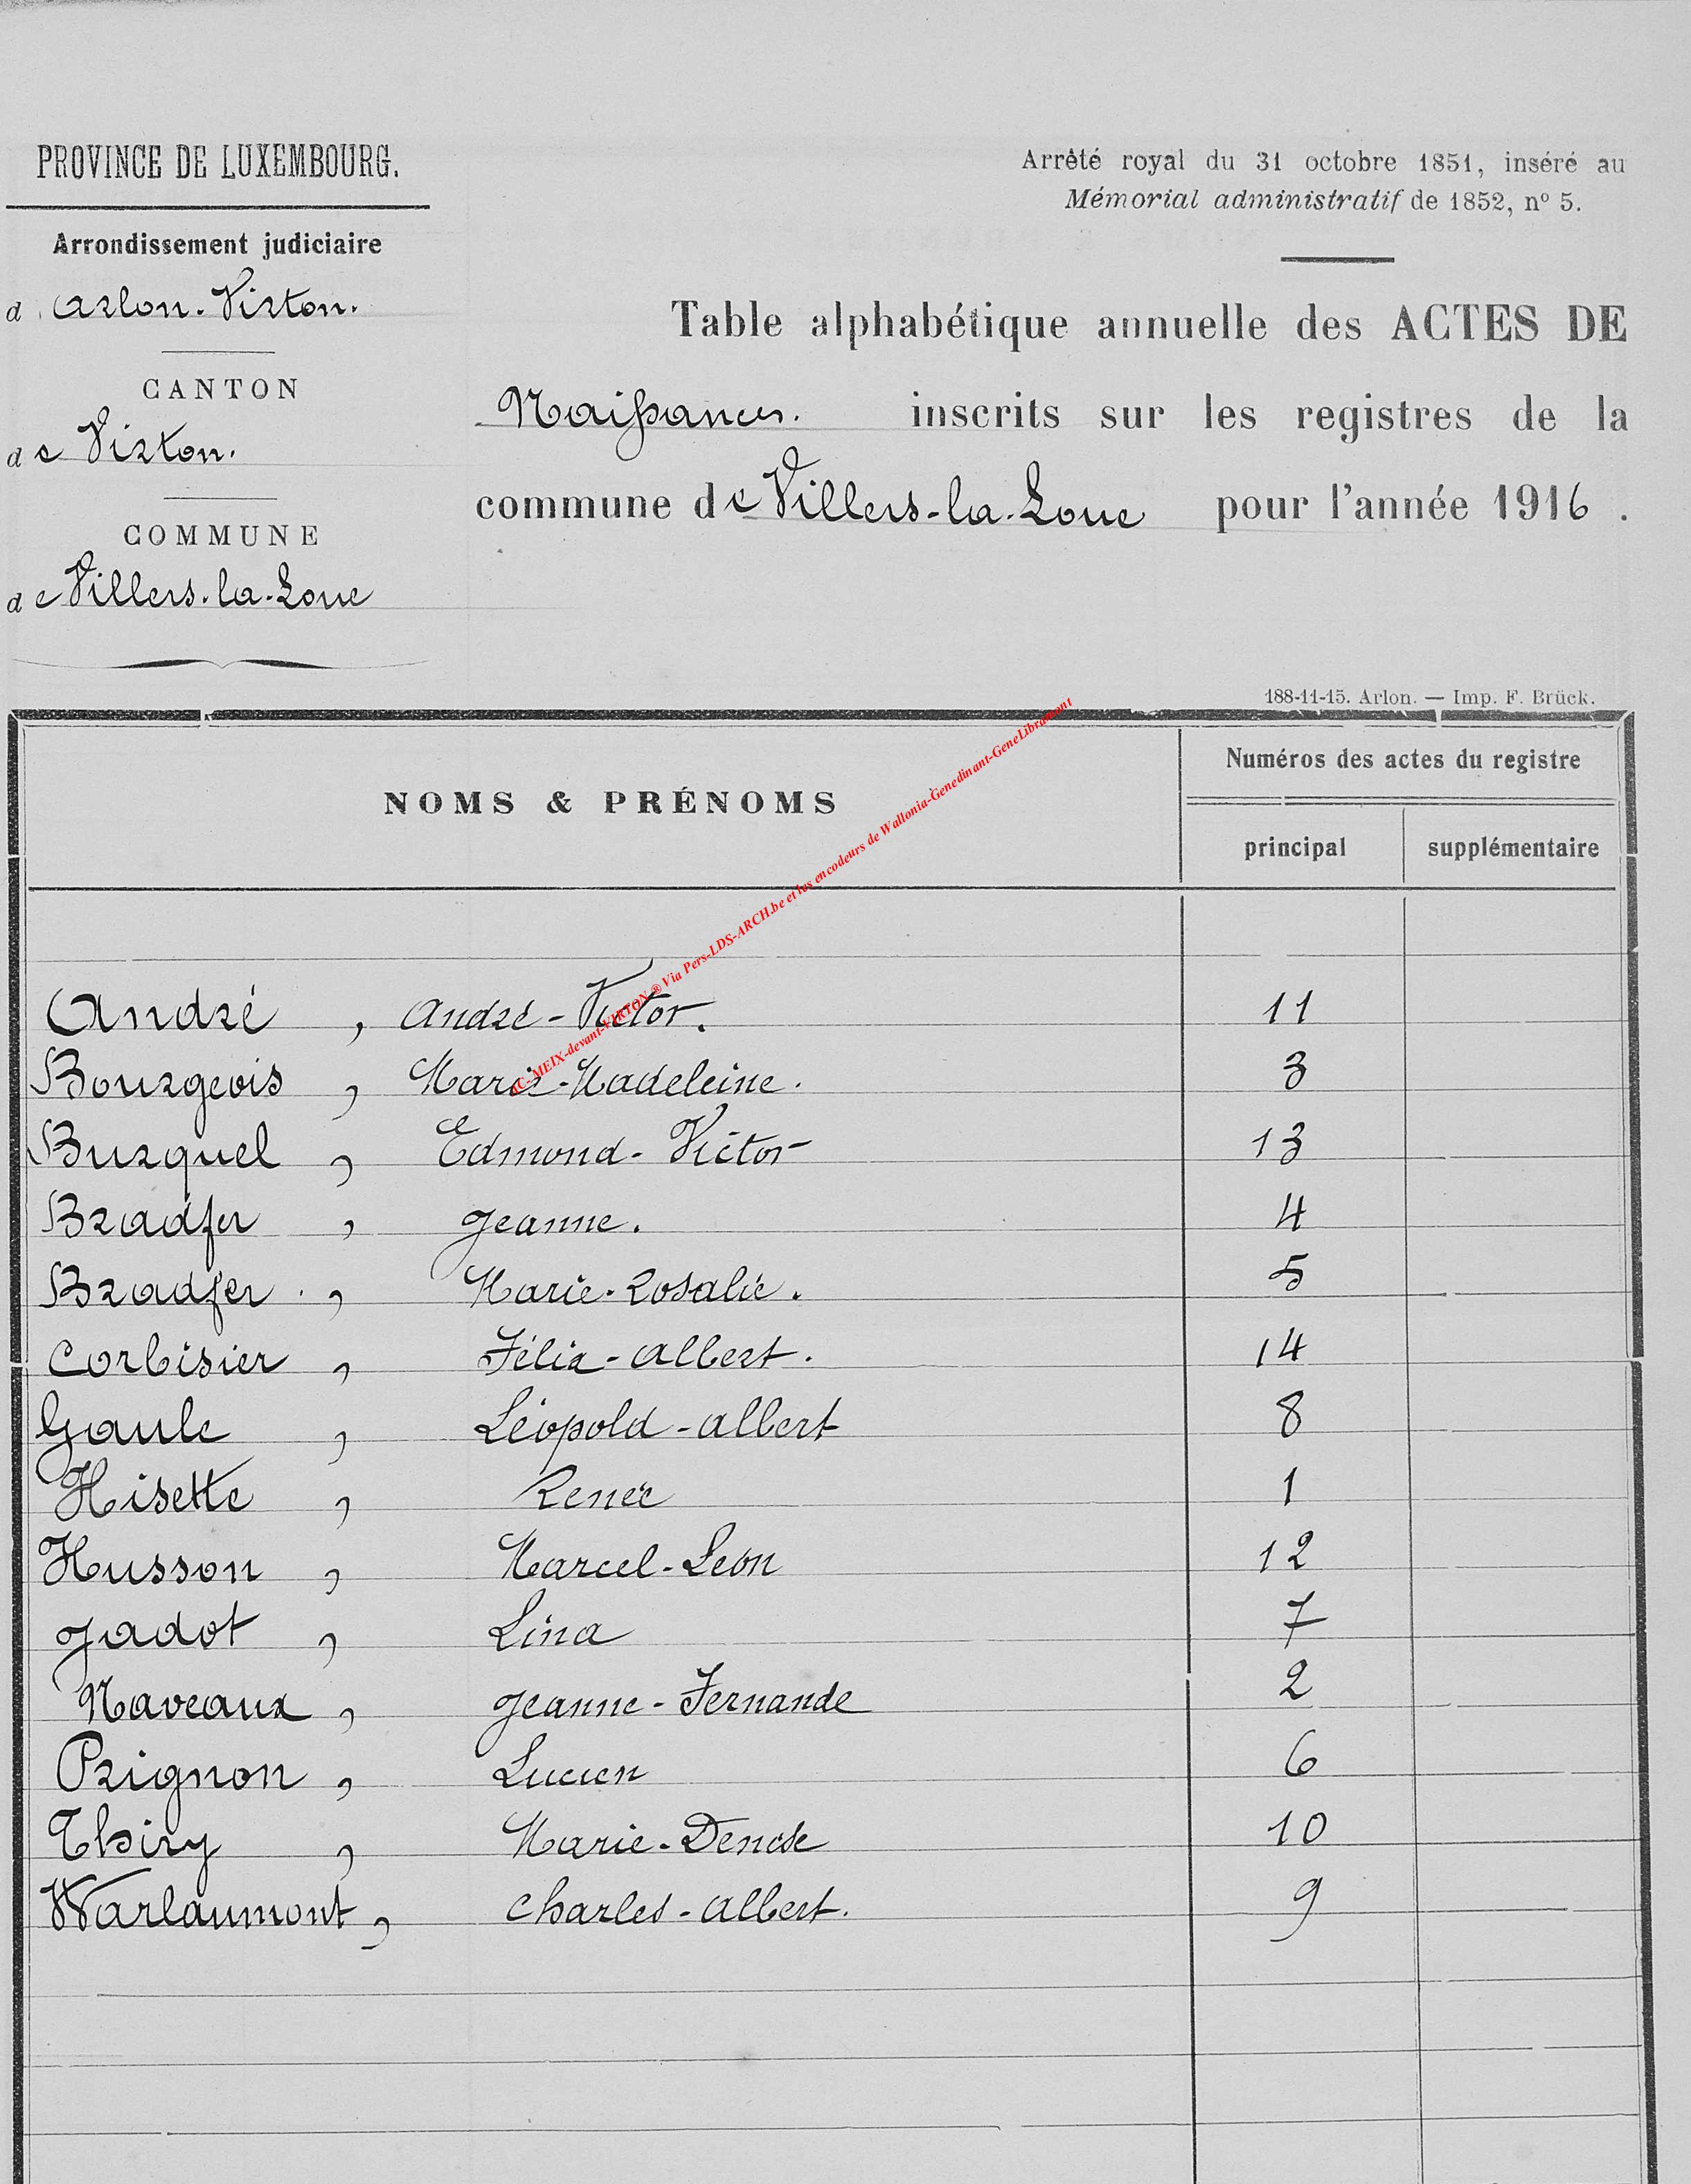 PROVINCE DE LUXEMBOURG.
Arrondissement judiciaire
d'Arlon-Virton.
CANTON
de Virton.
COMMUNE
de Villers-la-Loue
Arrêté royal du 31 octobre 1851, inséré au
Mémorial administratif de 1852, nº 5.
Table alphabétique annuelle des ACTES DE
Naissances. inscrits sur les registres de la
commune de Villers-la-Loue pour l'année 1916.
188-11-15. Arlon. — Imp. F. Brück.
NOMS & PRÉNOMS
Numéros des actes du registre
principal supplémentaire
André, André-Victor. 11
Bourgeois, Marie-Madeleine. 3
Burquel, Edmond-Victor 13
Bradfer, Jeanne. 4
Bradfer, Marie-Rosalie. 5
Corbisier, Félix-Albert. 14
Gaule, Léopold-Albert 8
Hisette, Renée 1
Husson, Marcel-Léon 12
Jadot, Lina 7
Naveaux, Jeanne-Fernande 2
Prignon, Lucien 6
Thiry, Marie-Denise 10
Warlaumont, Charles-Albert. 9
MEIX-devant-VIRTON ® Via Pers-LDS-ARCH.be et les encodeurs de Wallonia-Genedinant-GeneLibramont